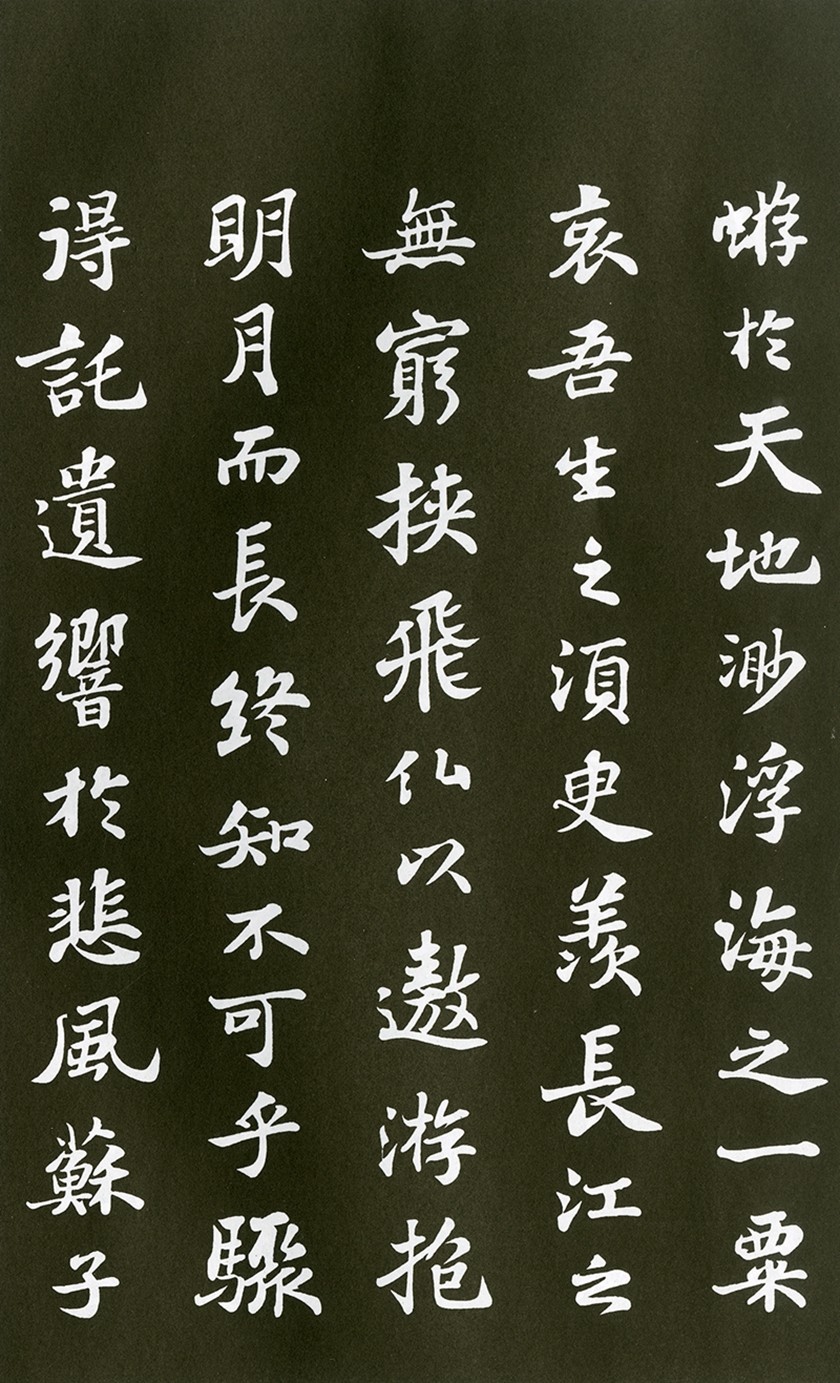 蝣於天地渺浮海之一粟
哀吾生之須臾羨長江之
無窮挾飛仙以遨游抱
明月而長终知不可乎驟
得託遺響於悲風蘇子